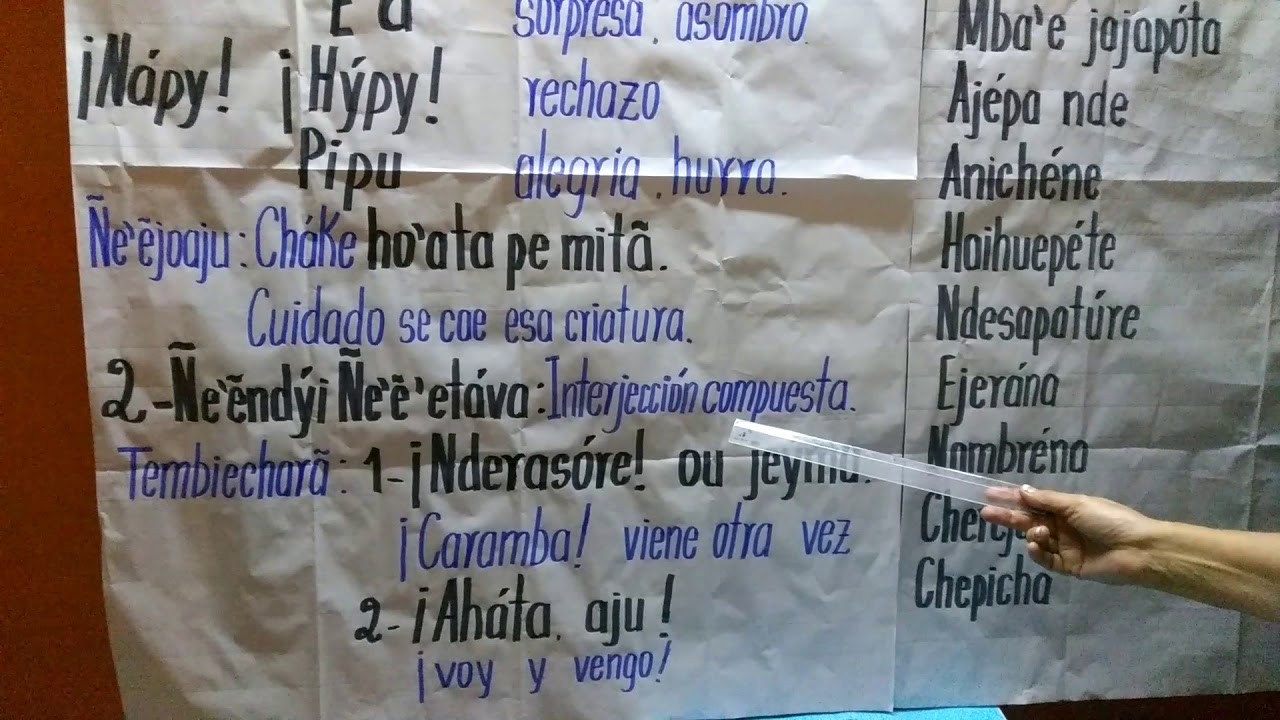 sorpresa, asombro.
¡Nápy! ¡Hýpy! rechazo
Pipu alegria, hurra.
Ñe'ẽjoaju: Cháke ho'ata pe mitã.
Cuidado se cae esa criatura.
2-Ñe'ẽndýi Ñe'ẽ'etáva: Interjección compuesta.
Tembiecharã: 1-¡Nderasóre! ou jeýma.
¡Caramba! viene otra vez
2-¡Aháta, aju!
¡voy y vengo!
Mba'e jajapóta
Ajépa nde
Anichéne
Haihuepéte
Ndesapatúre
Ejerána
Nambréna
Chepicha